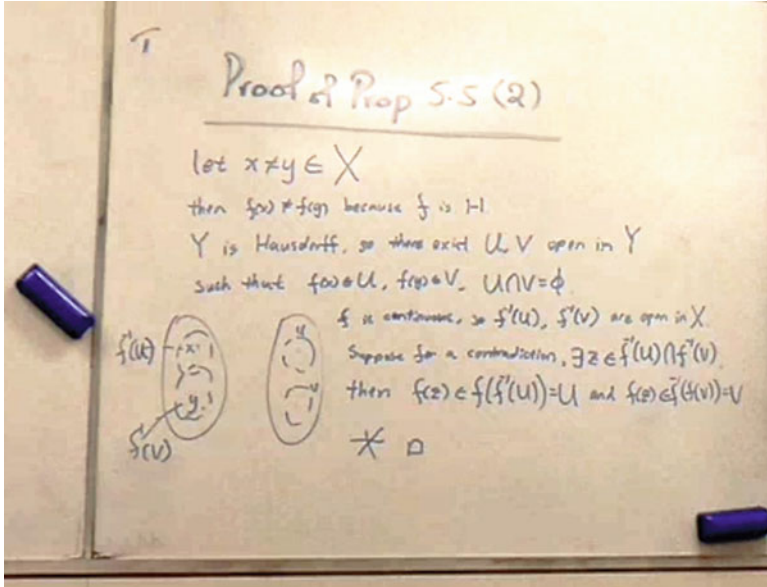 Proof of Prop 5.5 (2)
let x≠y∈X
then f(x) ≠ f(y) because f is 1-1
Y is Hausdorff, so there exist U, V open in Y
such that f(x)∈U, f(y)∈V, U∩V=ϕ.
f is continuous, so f⁻¹(U), f⁻¹(V) are open in X.
Suppose for a contradiction, ∃z∈f⁻¹(U)∩f⁻¹(V)
then f(z)∈f(f⁻¹(U))=U and f(z)∈f⁻¹(f(V))=V
f⁻¹(U)
x
y
f⁻¹(V)
U
V